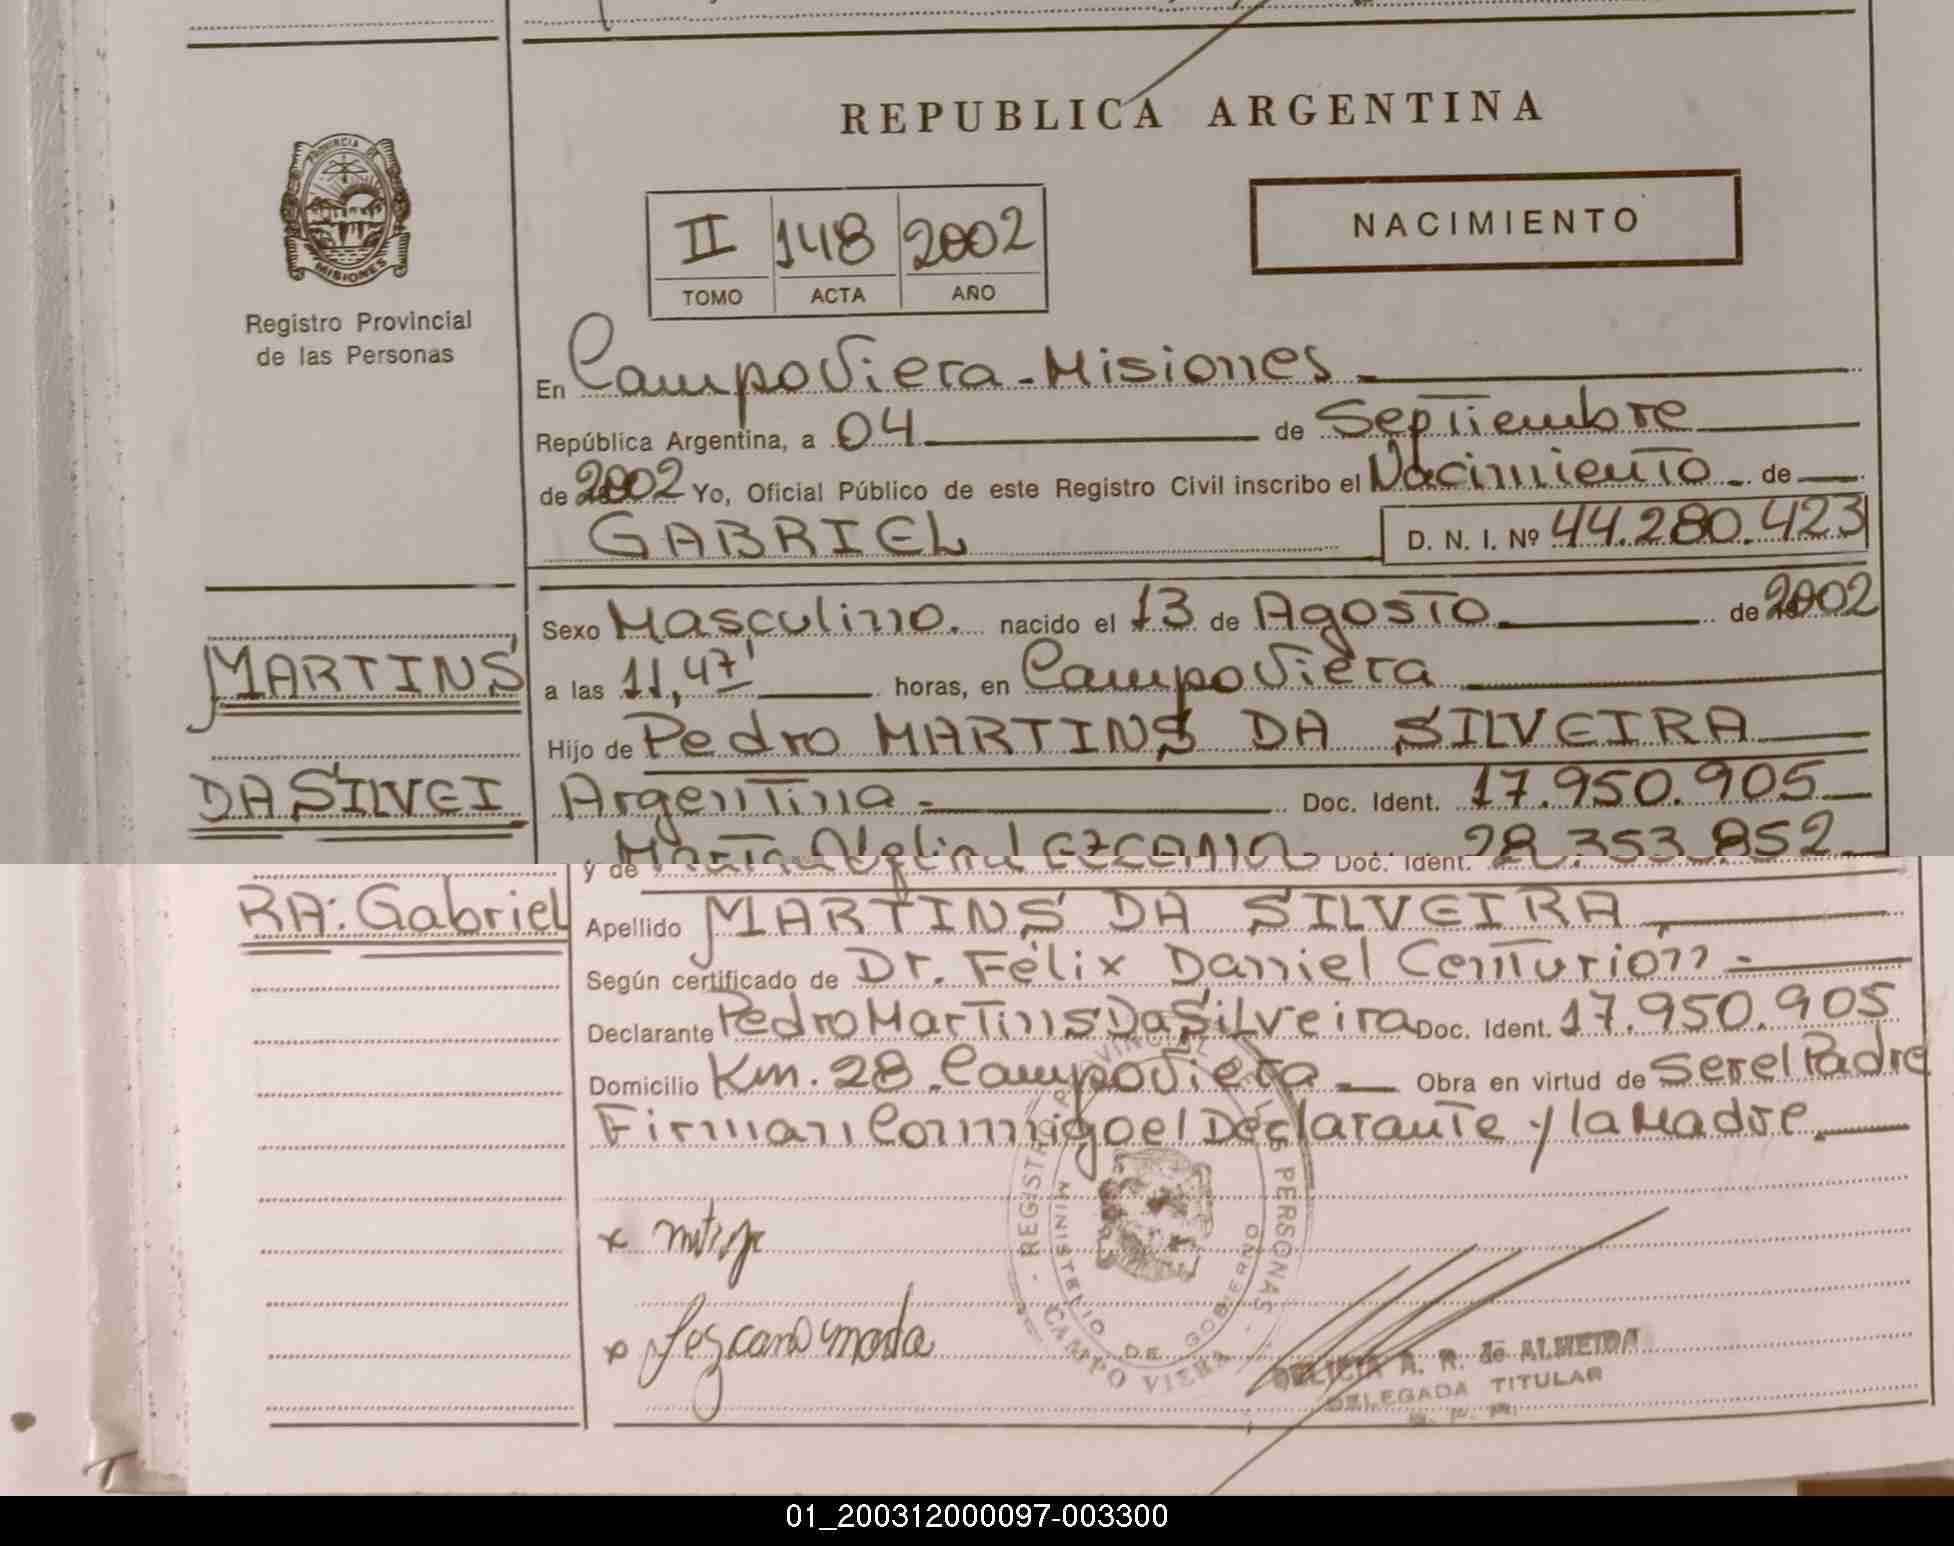 REPUBLICA ARGENTINA
PROVINCIA DE
MISIONES
Registro Provincial
de las Personas
II 148 2002
TOMO ACTA AÑO
NACIMIENTO
En Campo Viera - Misiones
República Argentina, a 04 de Septiembre
de 2002 Yo, Oficial Público de este Registro Civil inscribo el Nacimiento de
GABRIEL D. N. I. Nº 44.280.423
Sexo Masculino. nacido el 13 de Agosto de 2002
MARTINS
a las 11,47' horas, en Campo Viera
Hijo de Pedro MARTINS DA SILVEIRA
DA SILVEI
Argentina - Doc. Ident. 17.950.905
y de María Doc. Ident. 28.353.852
RA: Gabriel
Apellido MARTINS DA SILVEIRA
Según certificado de Dr. Félix Daniel Centurión -
Declarante Pedro Martins Da Silveira Doc. Ident. 17.950.905
Domicilio Km. 28. Campo Viera Obra en virtud de ser el Padre
Firman Conmigo el Declarante y la Madre.
REGISTRO PROVINCIAL DE LAS PERSONAS
MINISTERIO DE GOBIERNO
CAMPO VIERA
x
x Lezcano
DELICIA A. R. de ALMEIDA
DELEGADA TITULAR
01_200312000097-003300